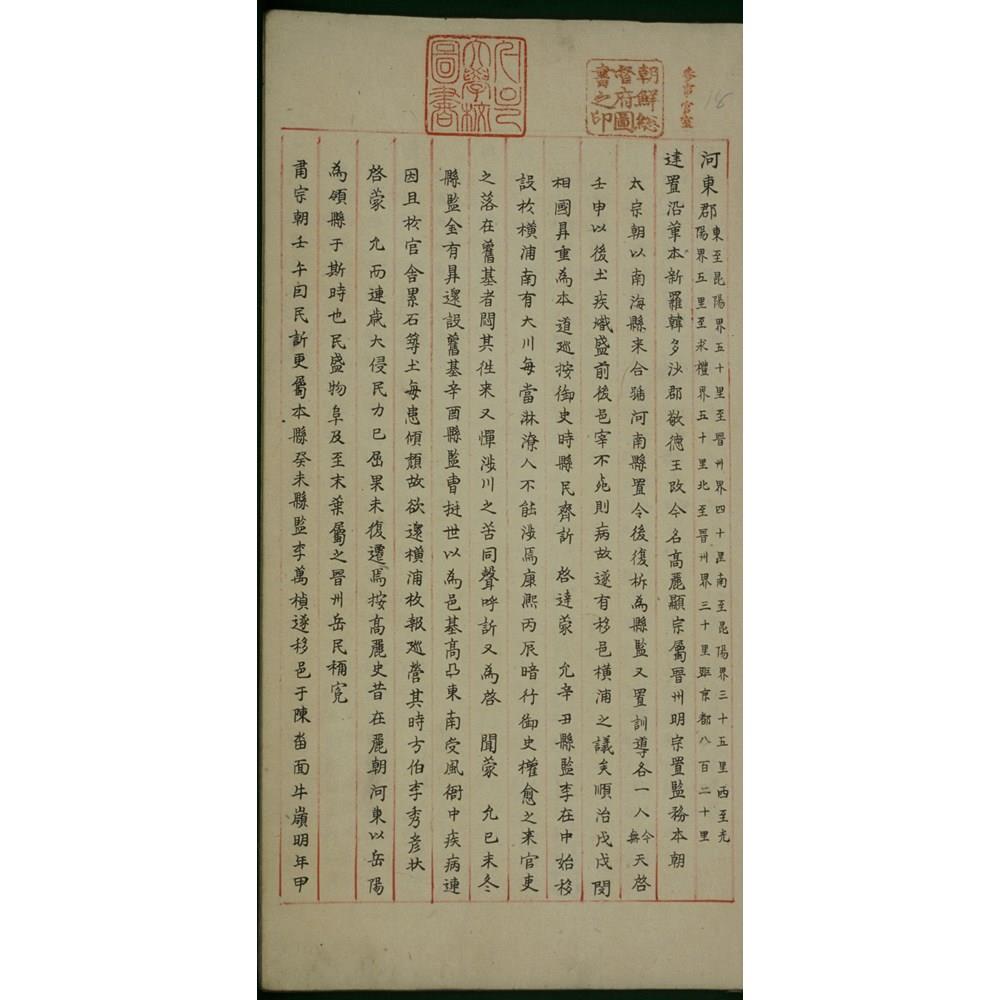 朝鮮總督府圖書之印
河東郡 東至昆陽界五十里至晉州界四十里南至昆陽界三十五里西至光陽界五里至求禮界五十里北至晉州界三十里距京都八百二十里
建置沿革本新羅韓多沙郡敬德王改今名高麗顯宗屬晉州明宗置監務本朝
太宗朝以南海縣来合號河南縣置令後復析為縣監又置訓導各一人今無天啓
壬申以後土疾熾盛前後邑宰不死則病故遂有移邑橫浦之議矣順治戊戌閔
相國昇重為本道廵按御史時縣民齊訴 啓達蒙 允辛丑縣監李在中始移
設於橫浦南有大川每當淋潦人不能涉焉康熙丙辰暗行御史權愈之来官吏
之落在舊基者悶其徃来又憚涉川之苦同聲呼訴又為啓 聞蒙 允己未冬
縣監金有昇還設舊基辛酉縣監曹挺世以為邑基高凸東南受風衙中疾病連
因且校官舍累石䓁土每患傾頹故欲還橫浦枚報廵營其時方伯李秀彦狀
啓蒙 允而連歲大侵民力已屈果未復遷焉按高麗史昔在麗朝河東以岳陽
為領縣于斯時也民盛物阜及至末葉屬之晉州岳民稱寃
肅宗朝壬午因民訴更屬本縣癸未縣監李萬禎遂移邑于陳畓面牛嶺明年甲